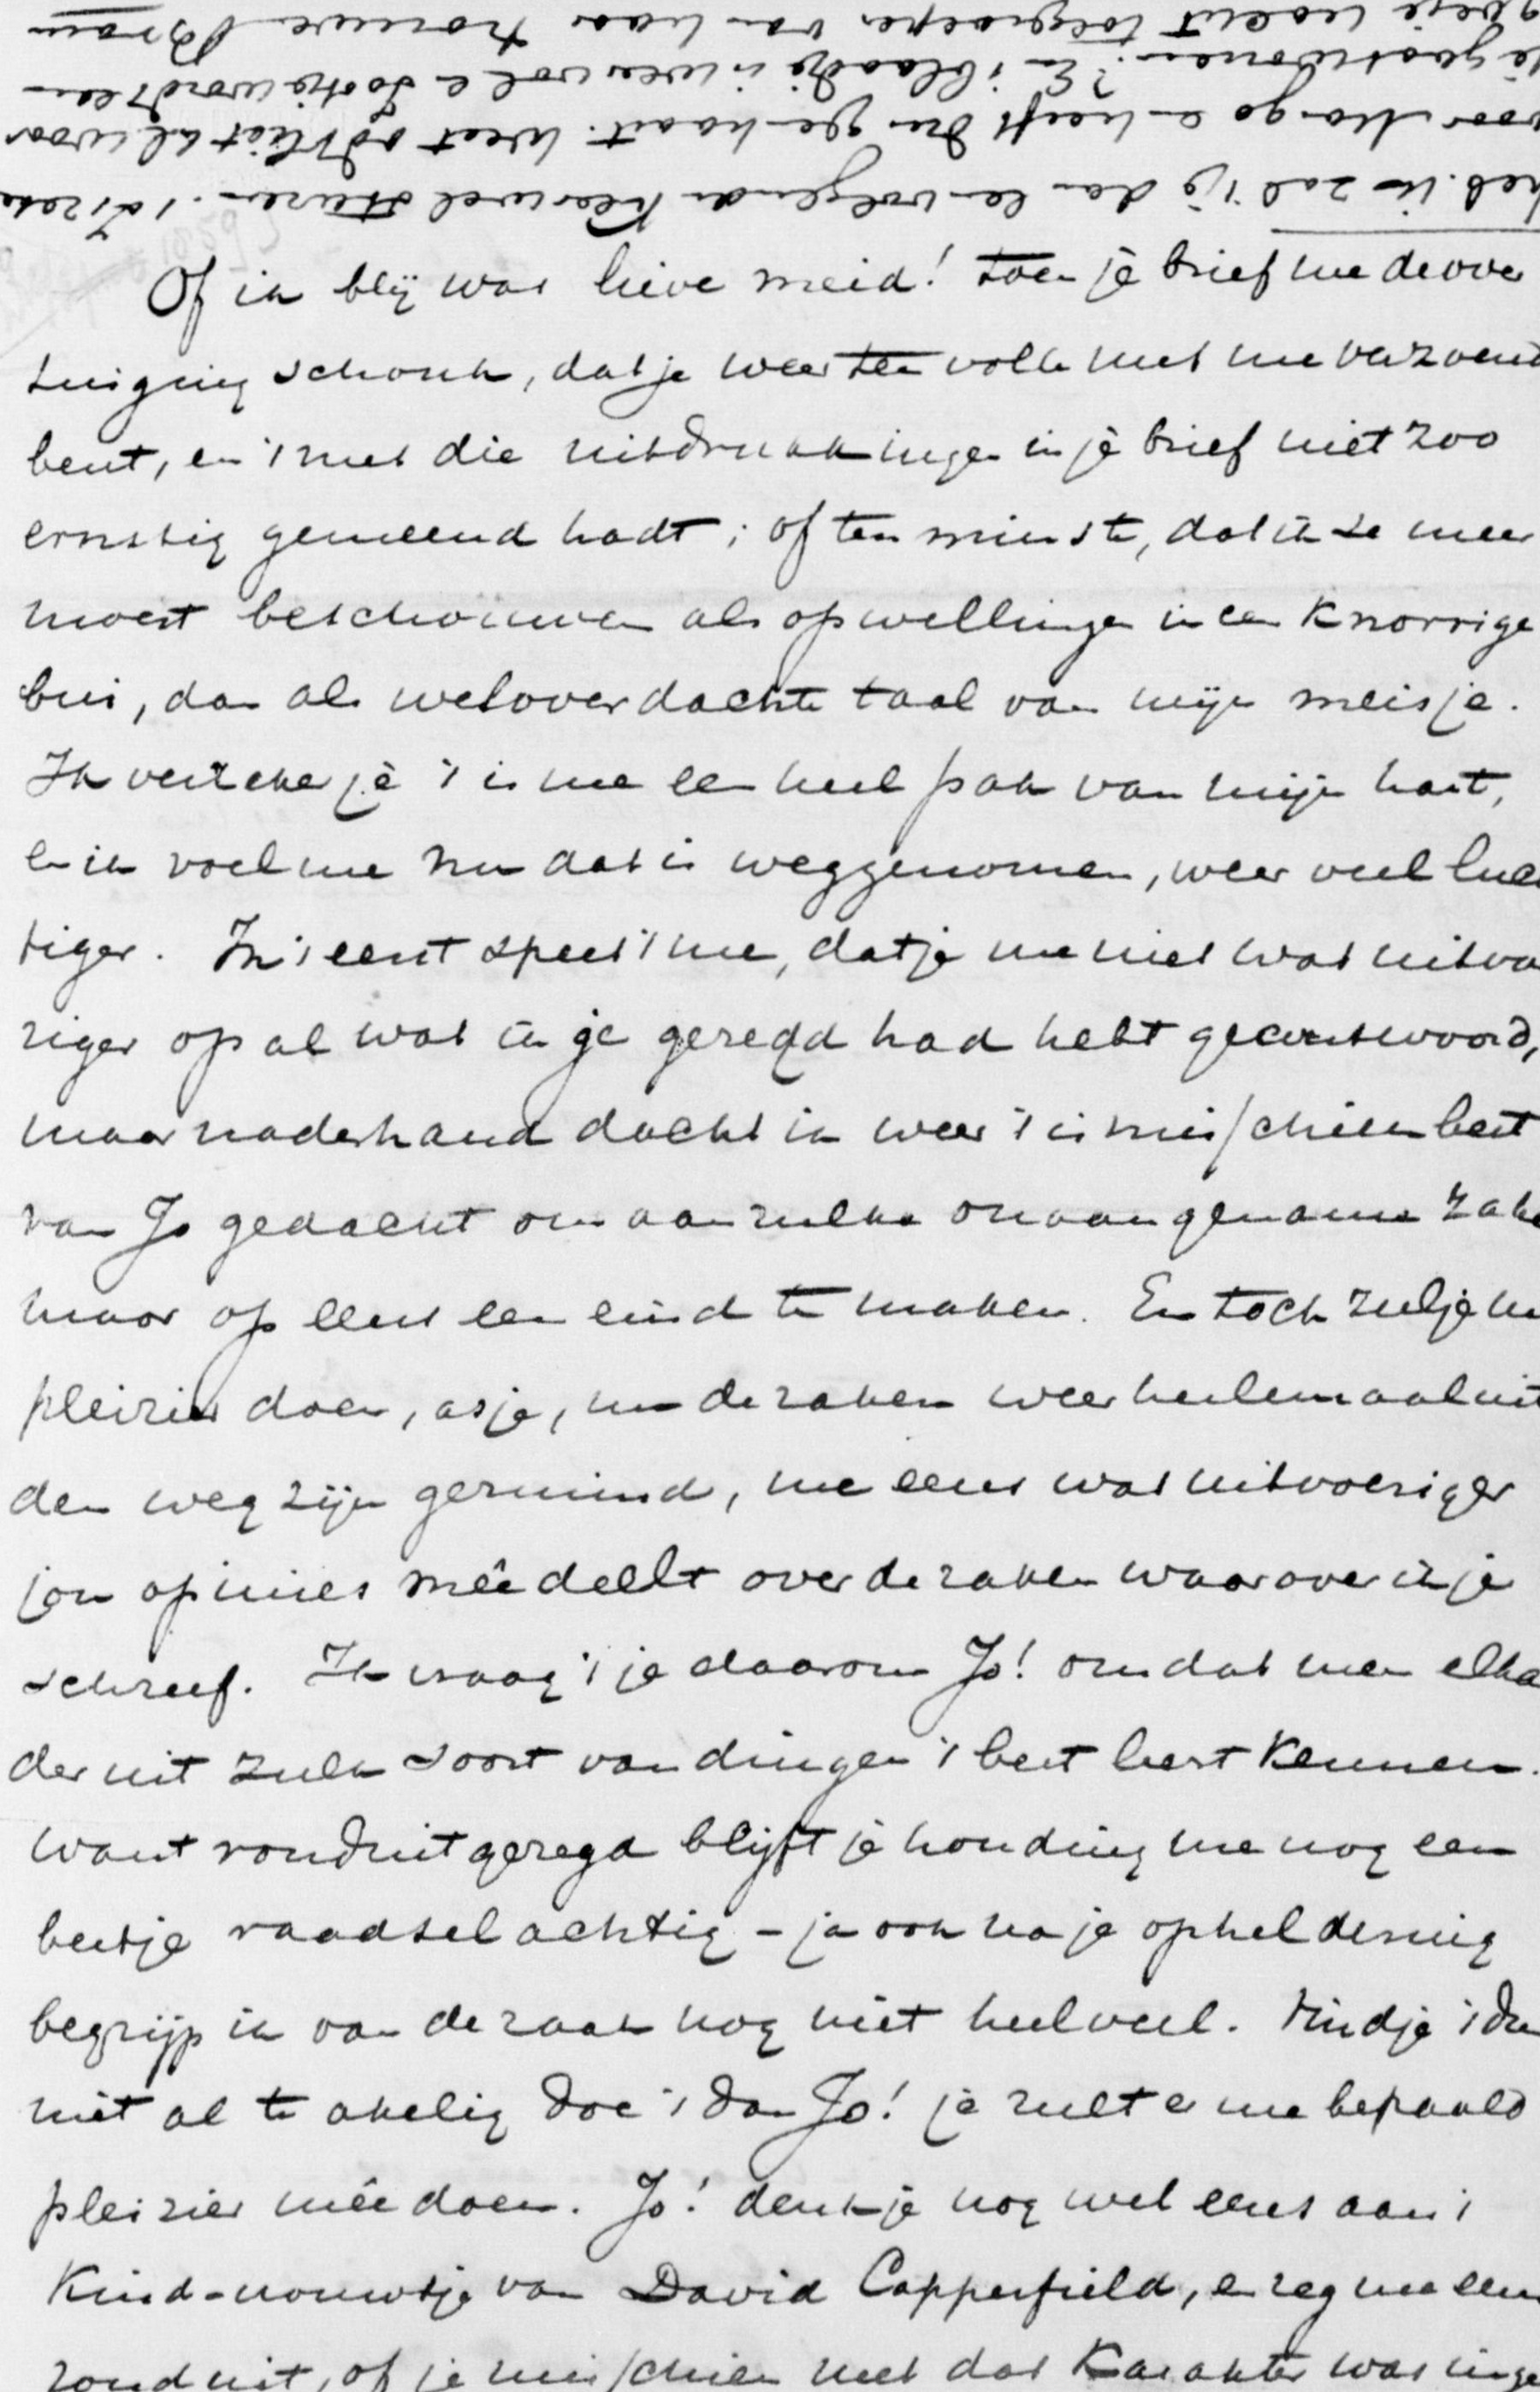 heb. Ik zal 't je dan een volgende keer wel sturen. 't Is
voor Margo en heeft dus gen haast. Weet odVliet al waar
je gaat wonen? En 't blaadje is weer vol en Jootje wordt een
goeje nacht toegroepen van haar trouwe Bram
Of ik blij was lieve meid! toen je brief me de over
tuiging schonk, dat je weer ten volle met me verzoend
bent, en 't met die uitdrukkingen in je brief niet zoo
ernstig gemeend hadt; of ten minste, dat ik ze meer
moest beschouwen als opwellingen in een knorrige
bui, dan als weloverdachte taal van mijn meisje.
Ik verzeker je 't is me een heel pak van mijn hart,
en ik voel me nu dat is weggenomen, weer veel luch
tiger. In 't eerst speet 't me, dat je me niet wat uitvoe
riger op al wat ik je gezegd had hebt geantwoord,
maar naderhand dacht ik weer 't is misschien best
van Jo gedacht om aan zulke onaangename zake
maar op eens een eind te maken. En toch zul je me
pleizier doen, as je, nu de zaken weer heelemaal uit
den weg zijn geruimd, me eens wat uitvoeriger
jou opinies meêdeelt over de zaken waarover ik je
schreef. Ik vraag 't je daarom Jo! omdat men elka
der uit zulk soort van dingen 't best leert kennen.
Want ronduit gezegd blijft je houding me nog een
beetje raadselachtig – ja ook na je opheldering
begrijp ik van de zaak nog niet heel veel. Vind je 't dus
niet al te akelig doe 't dan Jo! je zult er me bepaald
pleizier meê doen. Jo! denk je nog wel eens aan 't
Kind-vrouwtje van David Copperfield, en zeg me eens
ronduit, of je misschien met dat karakter was inge